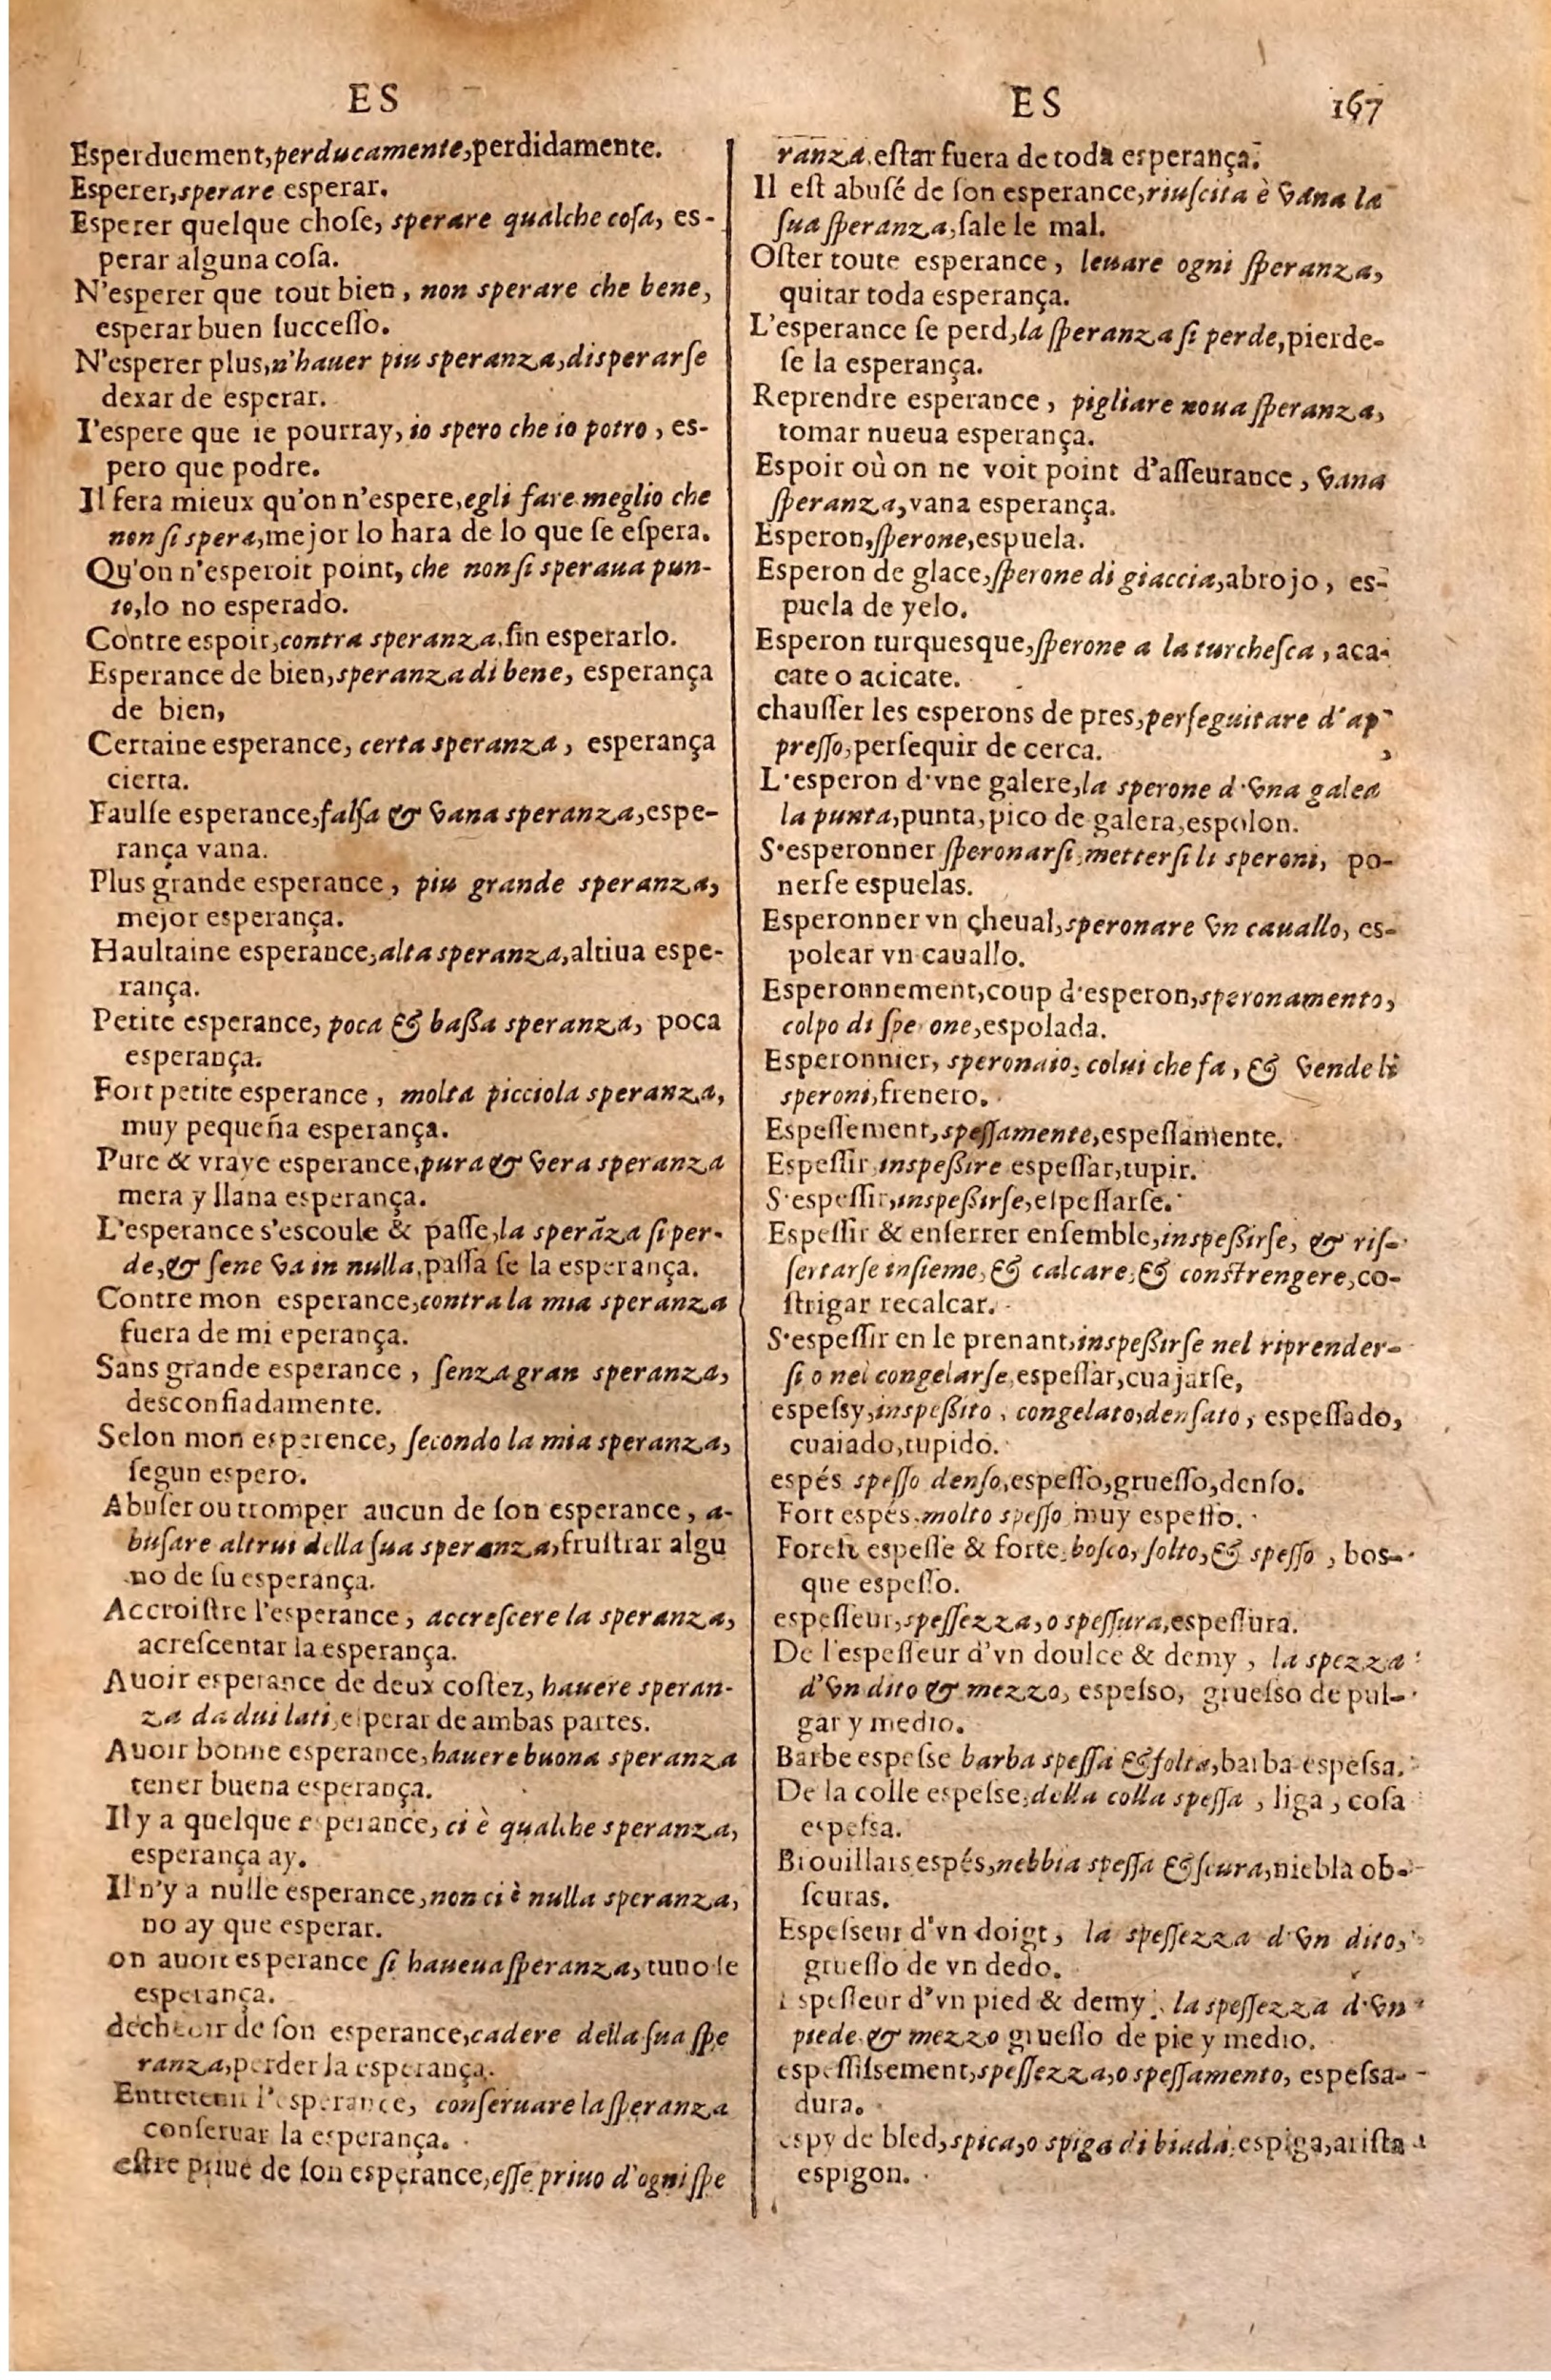 ES
Esperduement,perducamente,perdidamente.
Esperer,sperare esperar.
Esperer quelque choſe, sperare qualche coſa, es-
perar alguna coſa.
N'esperer que tout bien, non sperare che bene,
esperar buen ſucceſſo.
N'esperer plus,n'hauer piu speranza,disperarſe
dexar de esperar.
I'espere que ie pourray,io spero che io potro, es-
pero que podre.
Il fera mieux qu'on n'espere,egli fare meglio che
non ſi spera,mejor lo hara de lo que ſe eſpera.
Qu'on n'esperoit point, che non ſi speraua pun-
to,lo no esperado.
Contre espoir,contra speranza,ſin esperarlo.
Esperance de bien,speranza di bene, esperança
de bien,
Certaine esperance, certa speranza, esperança
cierta.
Faulſe esperance,falſa & vana speranza,espe-
rança vana.
Plus grande esperance, piu grande speranza,
mejor esperança.
Haultaine esperance,alta speranza,altiua espe-
rança.
Petite esperance, poca & baßa speranza, poca
esperança.
Fort petite esperance, molta picciola speranza,
muy pequeña esperança.
Pure & vraye esperance,pura & vera speranza
mera y llana esperança.
L'esperance s'escoule & paſſe,la sperãza ſi per-
de,& ſene va in nulla,paſſa ſe la esperança.
Contre mon esperance,contra la mia speranza
fuera de mi eperança.
Sans grande esperance, ſenza gran speranza,
desconfiadamente.
Selon mon esperence, ſecondo la mia speranza,
ſegun espero.
Abuſer ou tromper aucun de ſon esperance, a-
buſare altrui della ſua speranza,fruſtrar algu
no de ſu esperança.
Accroiſtre l'esperance, accreſcere la speranza,
acreſcentar la esperança.
Auoir esperance de deux coſtez, hauere speran-
za da dui lati,esperar de ambas partes.
Auoir bonne esperance,hauere buona speranza
tener buena esperança.
Il y a quelque esperance, ci è qualche speranza,
esperança ay.
Il n'y a nulle esperance,non ci è nulla speranza,
no ay que esperar.
on auoit esperance ſi haueua ſperanza, tuuo ſe
esperança.
decheoir de ſon esperance,cadere della ſua ſpe
ranza,perder la esperança.
Entretenir l'esperance, conſeruare la ſperanza
conſeruar la esperança.
eſtre priué de ſon esperance,eſſe priuo d'ogni ſpe
ES 167
ranza,eſtar fuera de toda esperança.
Il eſt abuſé de ſon esperance,riuſcita è vana la
ſua ſperanza,ſale le mal.
Oſter toute esperance, leuare ogni ſperanza,
quitar toda esperança.
L'esperance ſe perd,la ſperanza ſi perde,pierde-
ſe la esperança.
Reprendre esperance, pigliare noua ſperanza,
tomar nueua esperança.
Espoir où on ne voit point d'aſſeurance, vana
ſperanza,vana esperança.
Esperon,ſperone,espuela.
Esperon de glace,ſperone di giaccia,abrojo, es-
puela de yelo.
Esperon turquesque,ſperone a la turcheſca, aca-
cate o acicate.
chauſſer les esperons de pres,perſeguitare d'ap-
preſſo,perſequir de cerca.
L'esperon d'vne galere,la sperone d'vna galea
la punta,punta,pico de galera,espolon.
S'esperonner ſperonarſi,metterſi li speroni, po-
nerſe espuelas.
Esperonner vn cheual,speronare vn cauallo, es-
polear vn cauallo.
Esperonnement,coup d'esperon,speronamento,
colpo di ſperone,espolada.
Esperonnier, speronaio,colui che fa, & vende li
speroni,frenero.
Espeſſement,speſſamente,espeſſamente.
Espeſſir,inspeßire espeſſar,tupir.
S'espeſſir,inspeßirſe,eſpeſſarſe.
Espeſſir & enſerrer enſemble,inspeßirſe, & riſ-
ſertarſe inſieme,& calcare,& constrengere,co-
ſtrigar recalcar.
S'espeſſir en le prenant,inspeßirſe nel riprender-
ſi o nel congelarſe,espeſſar,cuajarſe,
espeſsy,inspeßito, congelato,denſato, espeſſado,
cuaiado,tupido.
espés speſſo denſo,espeſſo,grueſſo,denſo.
Fort espés,molto speſſo muy espeſſo.
Foreſt espeſſe & forte,boſco, folto,& speſſo, bos-
que espeſſo.
espeſſeur,speſſezza,o speſſura,espeſſura.
De l'espeſſeur d'vn doulce & demy, la spezza
d'vn dito & mezzo, espeſso, grueſso de pul-
gar y medio.
Barbe espeſse barba speſſa & folta,barba espeſsa.
De la colle espeſse,della colla speſſa, liga, coſa
espeſsa.
Brouillars espés,nebbia speſſa & ſcura,niebla ob-
ſcuras.
Espeſseur d'vn doigt, la speſſezza d'vn dito,
grueſſo de vn dedo.
Espeſſeur d'vn pied & demy, la speſſezza d'vn
piede & mezzo grueſſo de pie y medio.
espeſſiſsement,speſſezza,o speſſamento, espeſsa-
dura.
espy de bled,spica,o spiga di biada,espiga,ariſta
espigon.